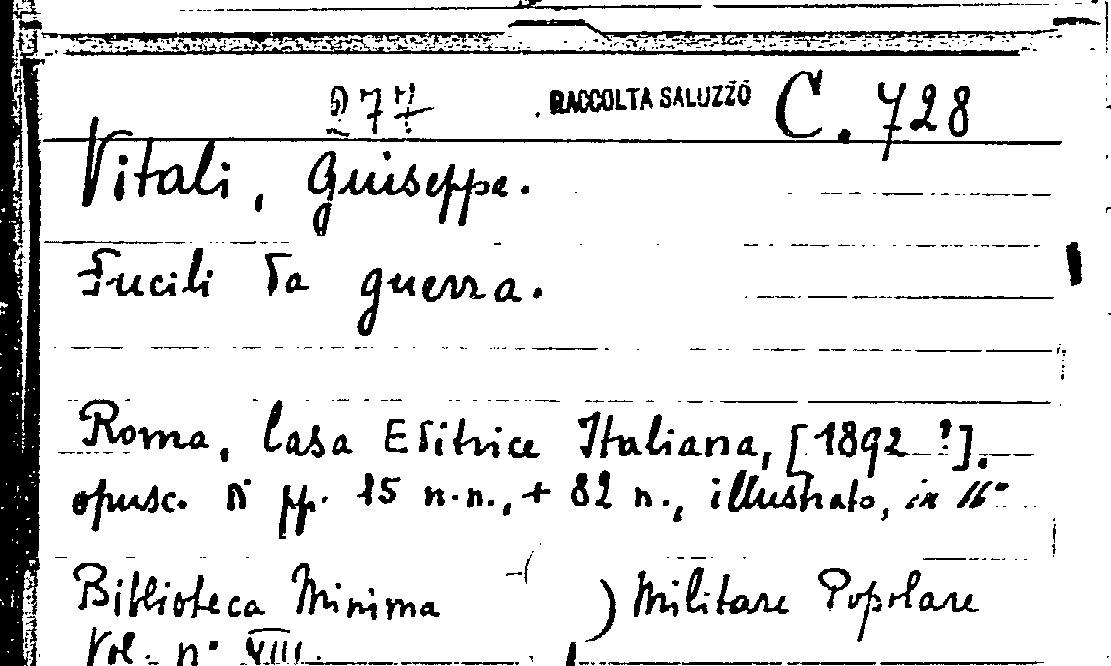 277 RACCOLTA SALUZZO C. 728
Vitali, Guiseppe.
Fucili da guerra.
Roma, Casa Editrice Italiana, [1892?].
opusc. di pp. 15 n.n., + 82 n., illustrato, in 16°
Biblioteca Minima ) Militare Popolare
Vol. n° XVIII.